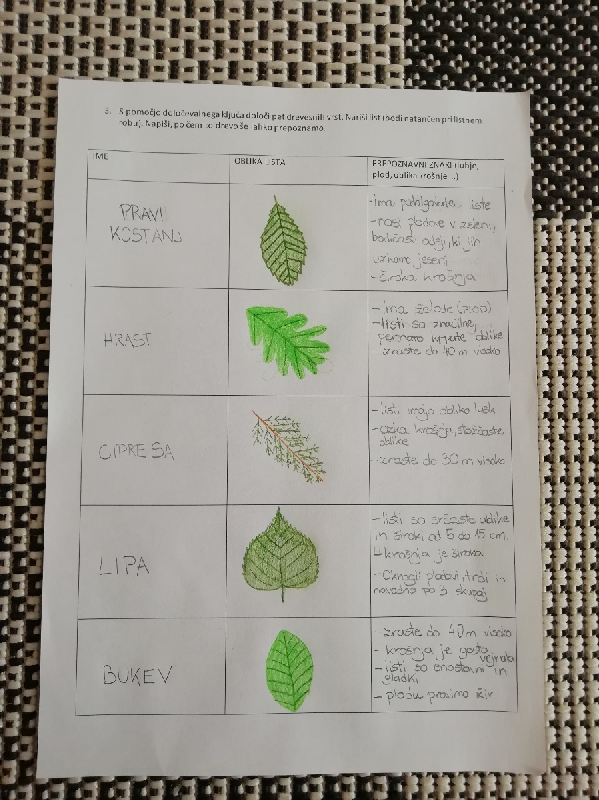 S pomočjo določevalnega ključa določi pet drevesnih vrst. Nariši list (bodi natančen pri listnem
robu). Napiši, po čem to drevo še lahko prepoznamo.
IME
OBLIKA LISTA
PREPOZNAVNI ZNAKI (lubje,
plod, oblika krošnje...)
PRAVI
KOSTANJ
-ima podolgovate liste
-nosi plodove v zeleni,
bodičasti ovojnici, ki jih
jeseni
- široka krošnja
HRAST
- ima želode (plod)
- listi so značilne,
pernato krpate oblike
zraste do 40 m visoko
CIPRESA
- listi imajo obliko lusk
- ozka krošnja, stožčaste
oblike
- zraste do 30 m visoko
LIPA
- listi so srčaste oblike
in široki od 5 do 15 cm.
krošnja je široka
- Okrogli plodovi, trdi in
navadno po 3 skupaj
BUKEV
- zraste do 40 m visoko
- krošnja je gosto
vejnata
- listi so enostavni in
gladki
- plodu pravimo žir